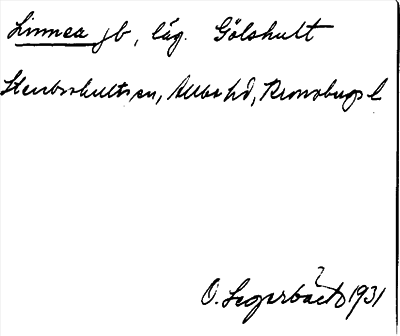 Linnea jb, läg. Gölshult
Stenbrohults sn, Allbo hd, Kronobergs l
O. Segerbäck 1931